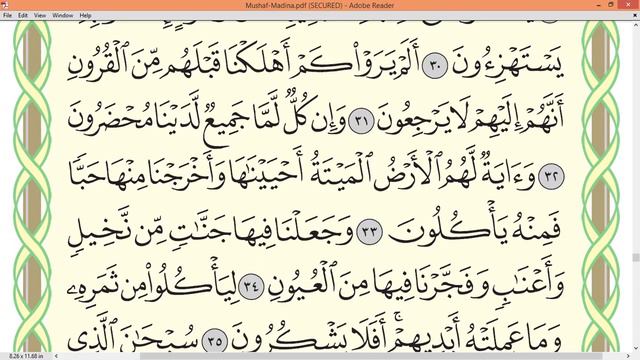 Mushaf-Madina.pdf (SECURED) - Adobe Reader
File Edit View Window Help
يَسۡتَهۡزِءُونَ ٣٠ أَلَمۡ يَرَوۡاْ كَمۡ أَهۡلَكۡنَا قَبۡلَهُم مِّنَ ٱلۡقُرُونِ
أَنَّهُمۡ إِلَيۡهِمۡ لَا يَرۡجِعُونَ ٣١ وَإِن كُلّٞ لَّمَّا جَمِيعٞ لَّدَيۡنَا مُحۡضَرُونَ
٣٢ وَءَايَةٞ لَّهُمُ ٱلۡأَرۡضُ ٱلۡمَيۡتَةُ أَحۡيَيۡنَٰهَا وَأَخۡرَجۡنَا مِنۡهَا حَبّٗا
فَمِنۡهُ يَأۡكُلُونَ ٣٣ وَجَعَلۡنَا فِيهَا جَنَّٰتٖ مِّن نَّخِيلٖ
وَأَعۡنَٰبٖ وَفَجَّرۡنَا فِيهَا مِنَ ٱلۡعُيُونِ ٣٤ لِيَأۡكُلُواْ مِن ثَمَرِهِۦ
وَمَا عَمِلَتۡهُ أَيۡدِيهِمۡۚ أَفَلَا يَشۡكُرُونَ ٣٥ سُبۡحَٰنَ ٱلَّذِي
8.26 x 11.68 in